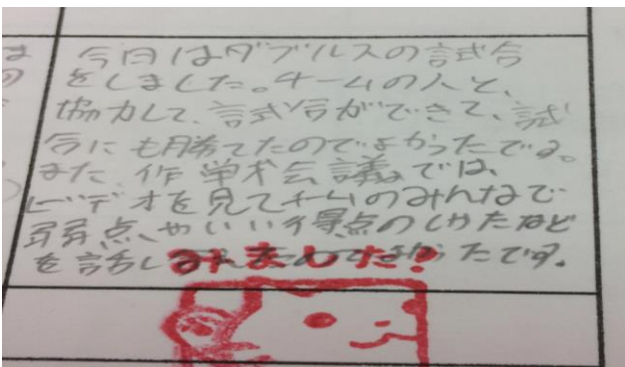 今日はダブルスの試合
をしました。チームの人と、
協力して、試合ができて、試
合にも勝てたのでよかったです。
また、作戦会議では、
ビデオを見てチームのみんなで
弱点、やいい得点のしかたなど
を話し合えたのでよかったです。
みました!